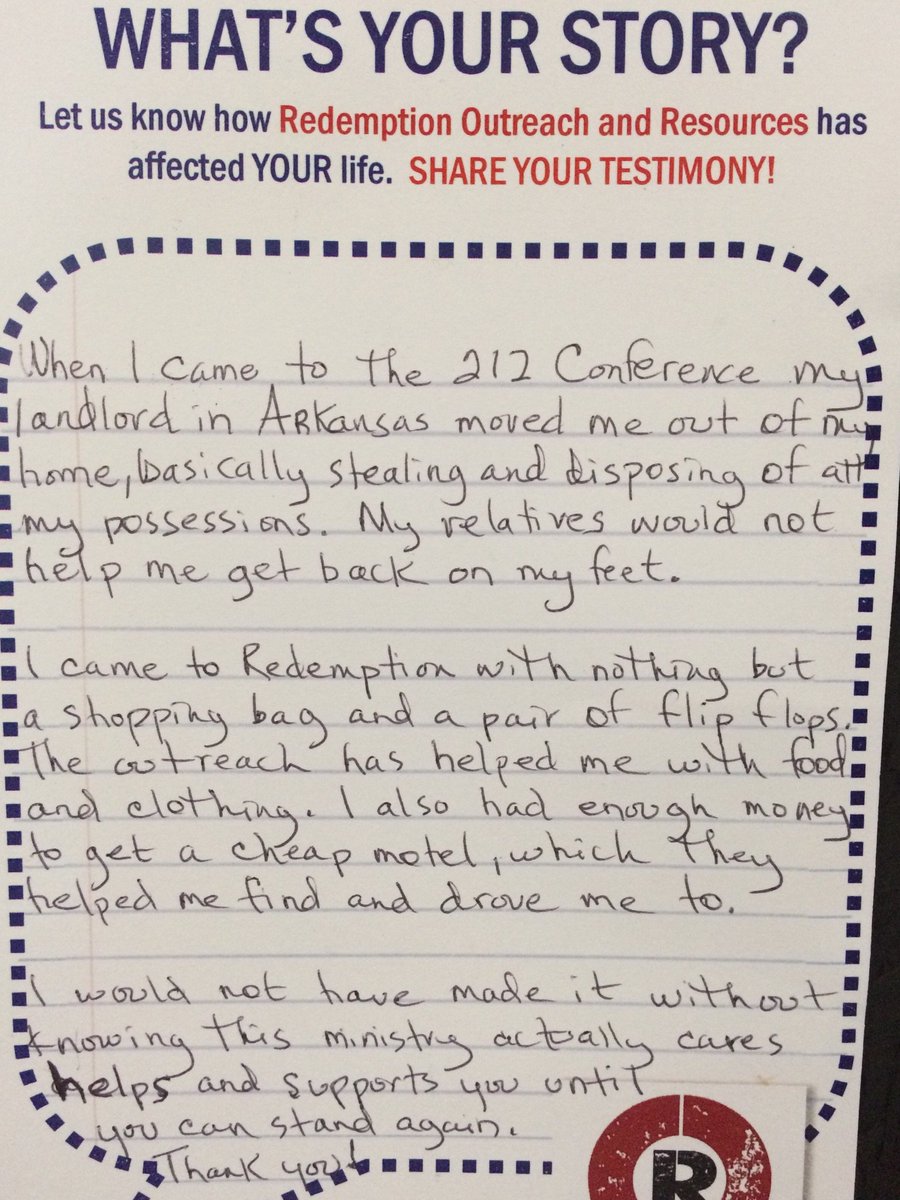 WHAT'S YOUR STORY?
Let us know how Redemption Outreach and Resources has
affected YOUR life. SHARE YOUR TESTIMONY!
When I came to the 212 Conference my
landlord in Arkansas moved me out of my
home, basically stealing and disposing of all
my possessions. My relatives would not
help me get back on my feet.
I came to Redemption with nothing but
a shopping bag and a pair of flip flops.
The outreach has helped me with food
and clothing. I also had enough money
to get a cheap motel, which they
helped me find and drove me to.
I would not have made it without
knowing this ministry actually cares
helps and supports you until
you can stand again.
Thank you!
R